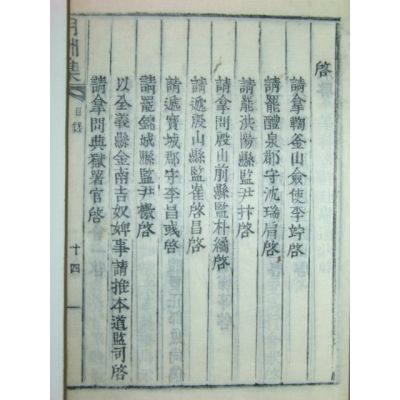 啓
請拿鞫釜山僉使李竚啓
請罷醴泉郡守沈瑞肩啓
請罷洪陽縣監尹抃啓
請拿問殷山前縣監朴緰啓
請遞殷山縣監崔啓昌啓
請遞寶城郡守李昌彧啓
請罷錦城縣監尹 啓
以全義縣金南吉奴婢事請推本道監司啓
請拿問典獄署官啓
洲集
目錄
十四